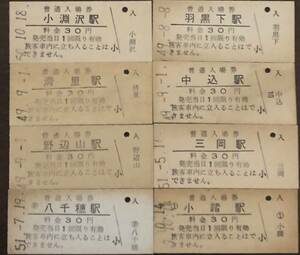 普通入場券
小淵沢駅
料金30円
発売当日1回限り有効
旅客車内に立ち入ることは
できません。
小
人
小淵沢
普通入場券
羽黒下駅
料金30円
発売当日1回限り有効
旅客車内に立ち入ることは
できません。
小
人
羽黒下
普通入場券
清里駅
料金30円
発売当日1回限り有効
旅客車内に立ち入ることは
できません。
小
人
清里
普通入場券
中込駅
料金30円
発売当日1回限り有効
旅客車内に立ち入ることは
できません。
小
人
中込
普通入場券
野辺山駅
料金30円
発売当日1回限り有効
旅客車内に立ち入ることは
できません。
小
人
野辺山
普通入場券
三岡駅
料金30円
発売当日1回限り有効
旅客車内に立ち入ることは
できません。
小
人
三岡
51.-7.19
普通入場券
八千穂駅
料金30円
発売当日1回限り有効
旅客車内に立ち入ることは
できません。
小
人
八千穂
普通入場券
小諸駅
料金30円
発売当日1回限り有効
旅客車内に立ち入ることは
できません。
小
人
①小諸